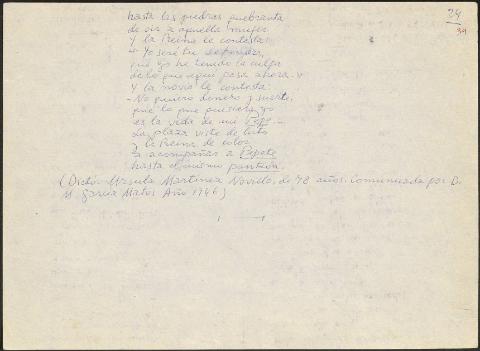 24
34
hasta las piedras quebranta
de oir a aquella mujer
y la Reina le contesta:
- Yo seré tu defensora,
que yo he tenido la culpa
de lo que aquí pasa ahora.
Y la novia le contesta:
- No quiero dinero y suerte,
que lo que quisiera yo
es la vida de mi Pepe -
La plaza viste de luto
y la Reina de color
y acompañan a Pepete
hasta el mismo panteón.
(Dictó: Ursula Martínez Novielo, de 78 años. Comunicada por D.
M. García Matos Año 1946)